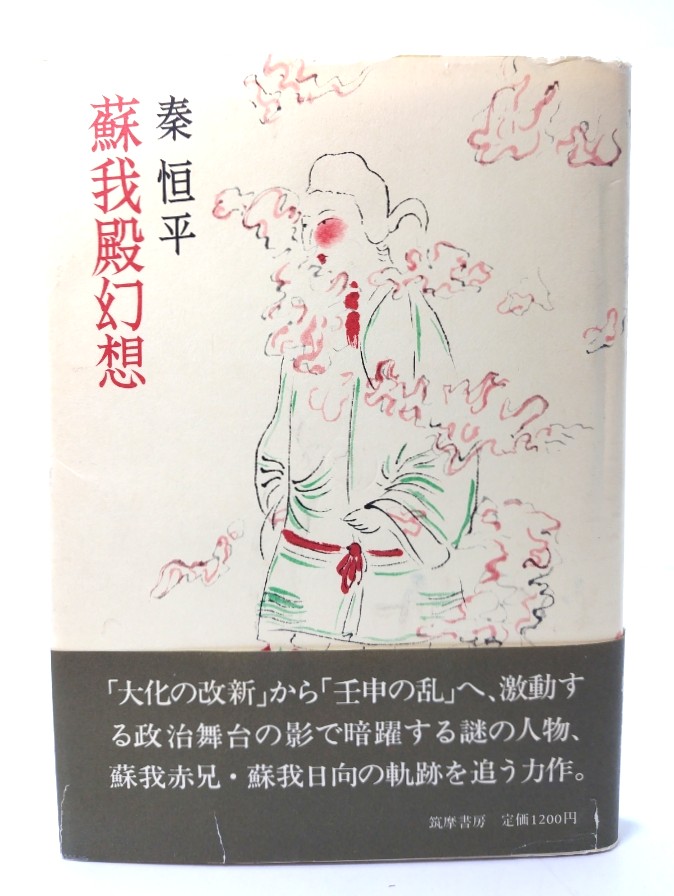 秦恒平
蘇我殿幻想
「大化の改新」から「壬申の乱」へ、激動す
る政治舞台の影で暗躍する謎の人物、
蘇我赤兄・蘇我日向の軌跡を追う力作。
筑摩書房 定価1200円